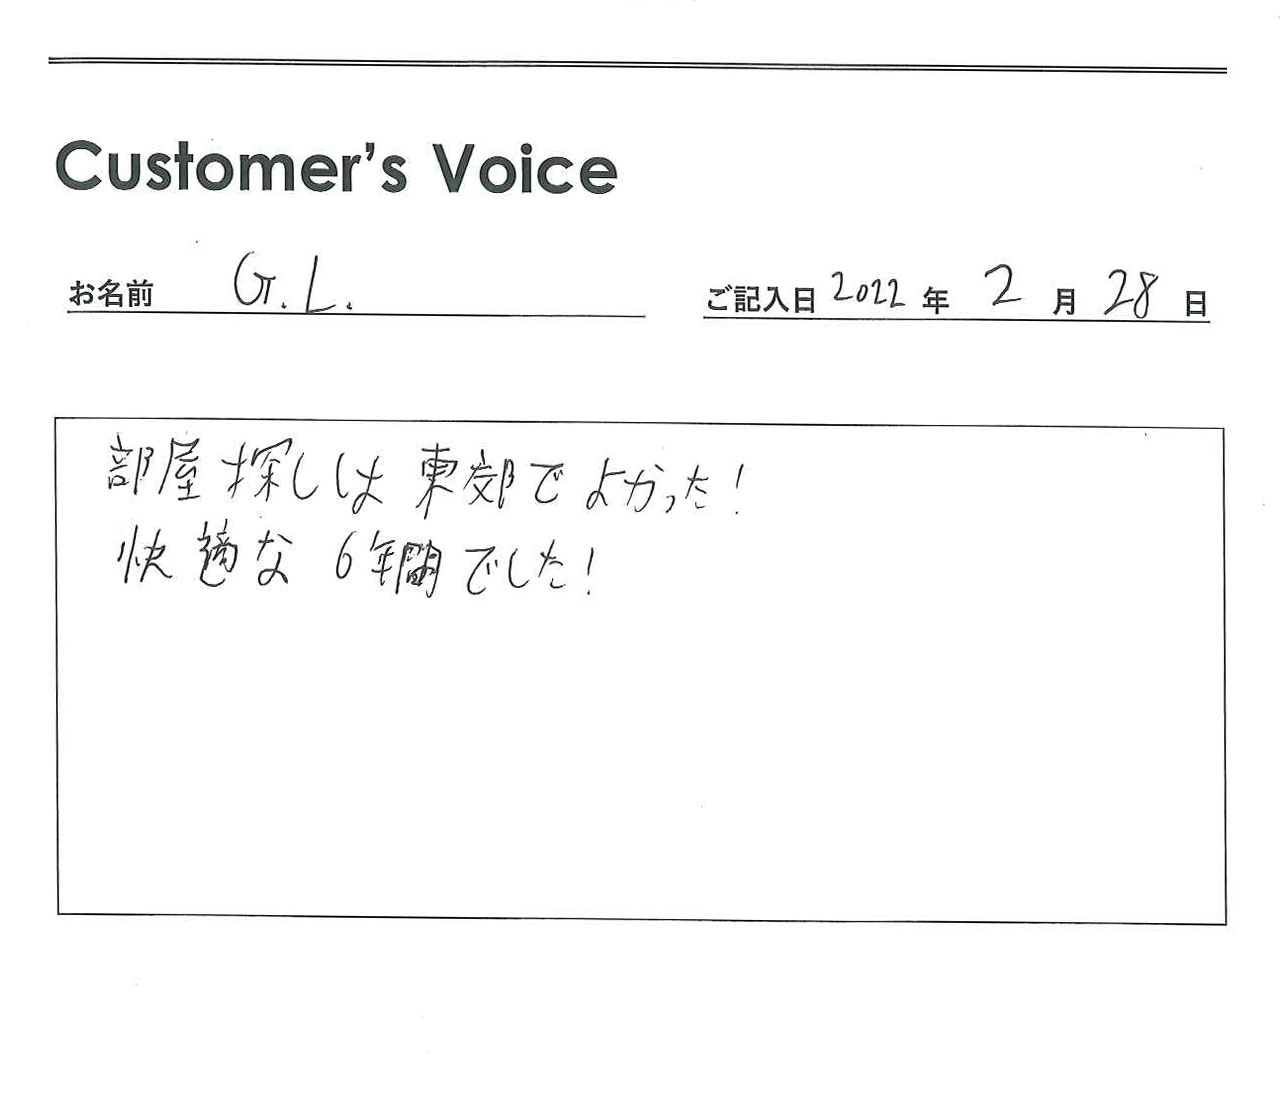 Customer's Voice
お名前 G.L. ご記入日 2022 年 2 月 28 日
部屋探しは東郊でよかった!
快適な 6年間でした!